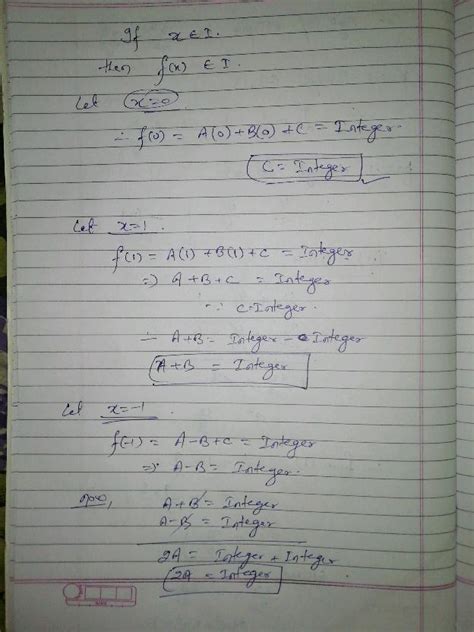 If x ∈ I.
then f(x) ∈ I.
Let x=0
∴ f(0) = A(0)+B(0)+C = Integer.
C = Integer
Let x=1.
f(1) = A(1)+B(1)+C = Integer
⇒ A+B+C = Integer.
∵ C=Integer.
∴ A+B = Integer - Integer
A+B = Integer
Let x=-1.
f(-1) = A-B+C = Integer
⇒ A-B = Integer.
Now, A+B = Integer
A-B = Integer
2A = Integer + Integer
2A = Integer